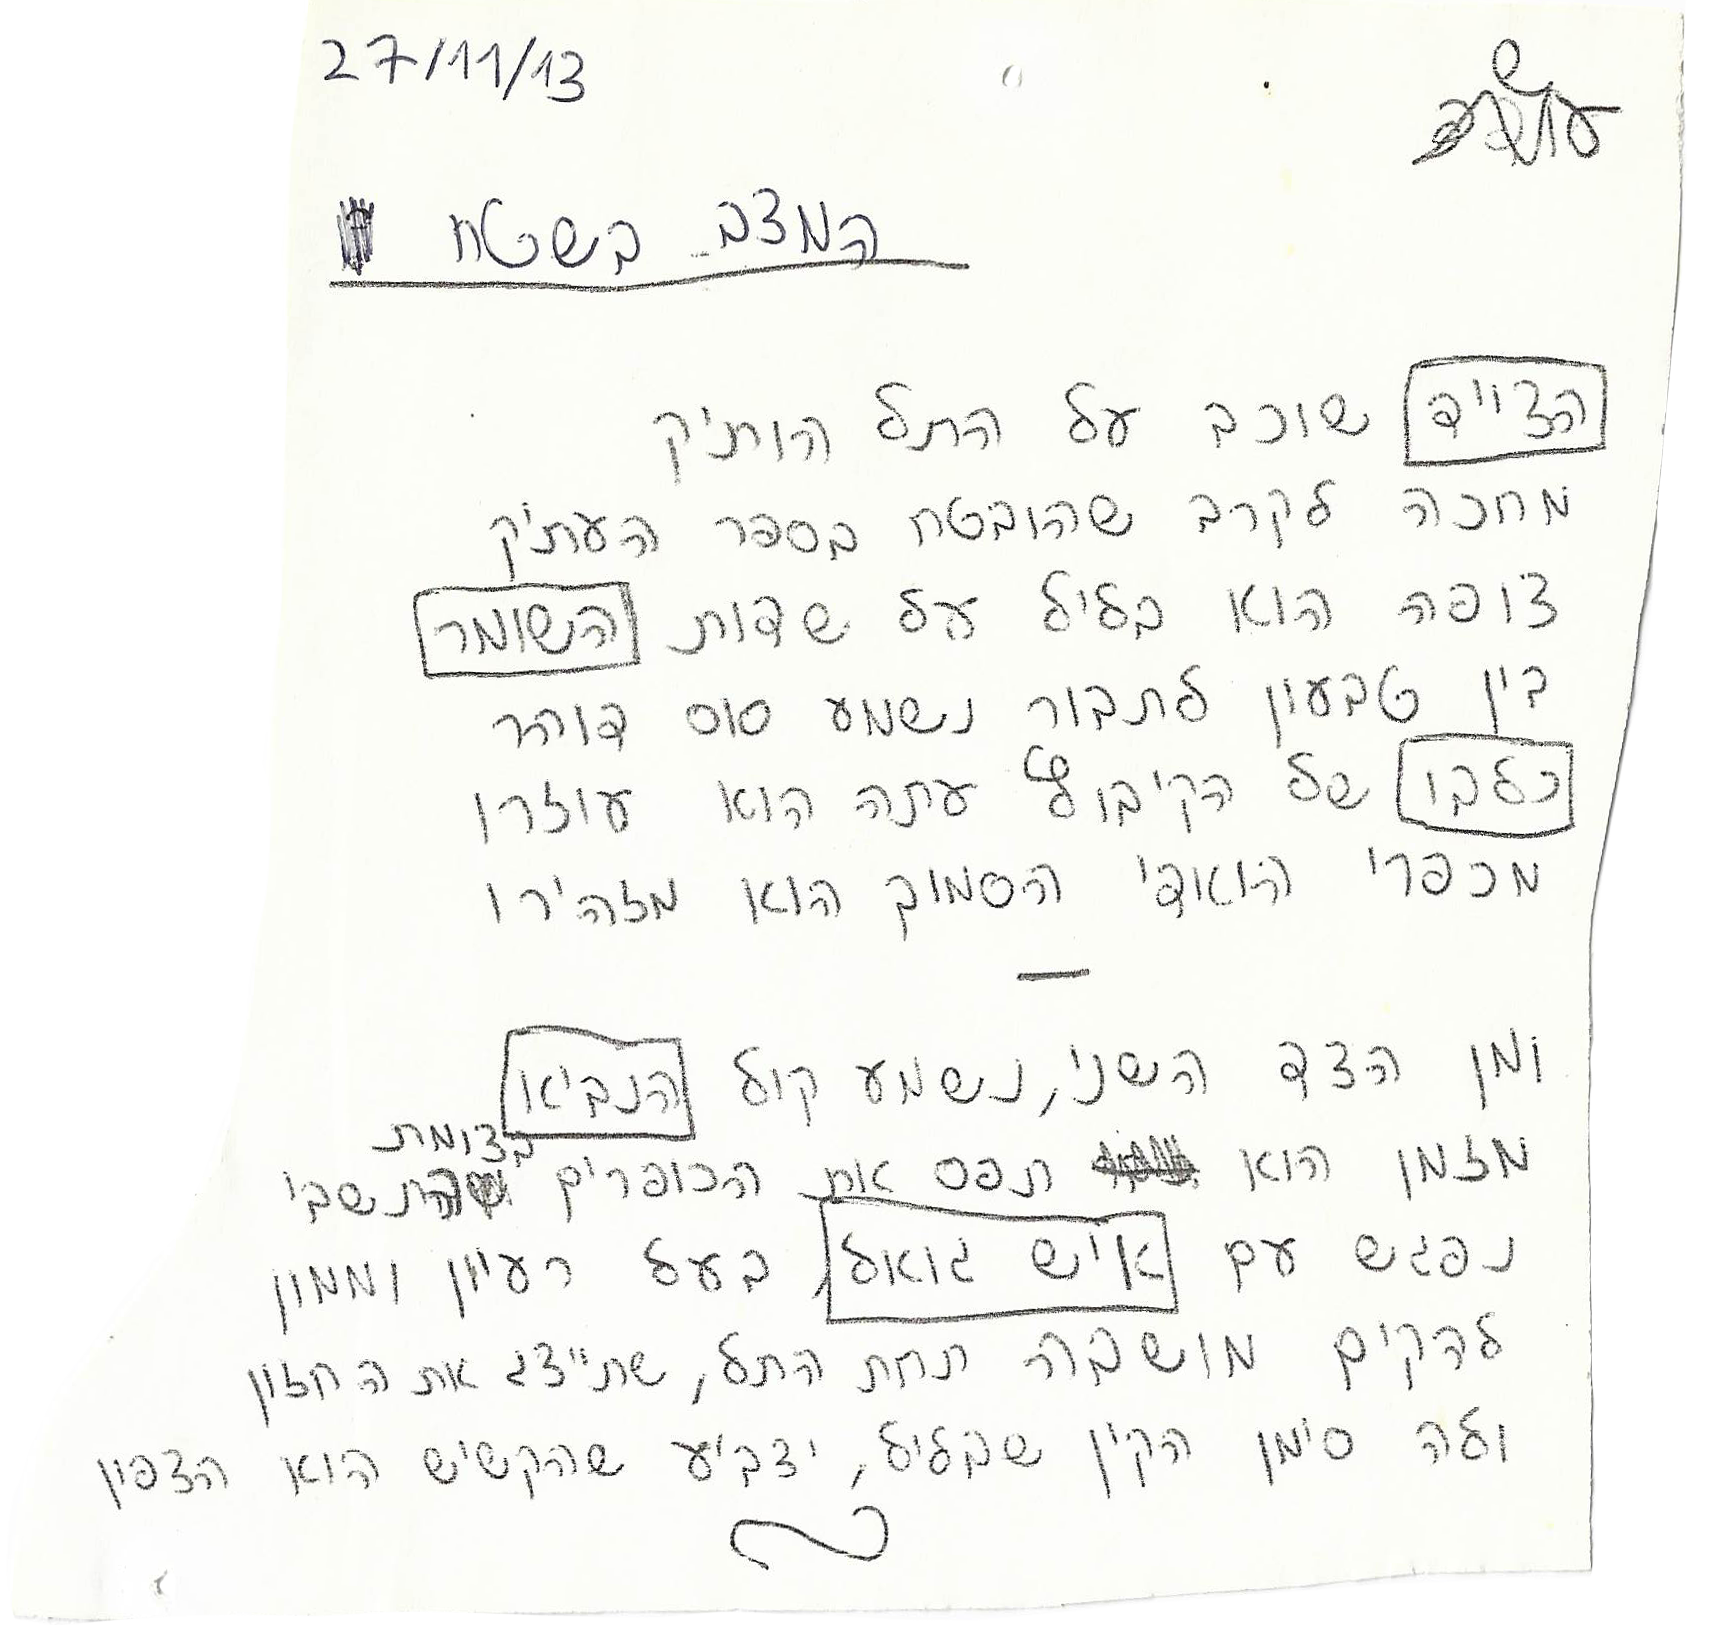 27/11/13
המצב בשטח
הצייד שוכב על התל הותיק
מחכה לקרב שהובטח בספר העתיק
צופה הוא בליל על שדות השומר
בין טבעון לתבור נשמע סוס דוהר
כלבו של הקיבוץ עתה הוא עוזרו
מכפרי הואדי הסמוך הוא מזהירו
—
ומן הצד השני, נשמע קול הנביא
מזמן הוא תפס את הכופרים בצומת התשבי
נפגש עם איש גואל, בעל רעיון וממון
להקים מושבה תחת התל, שתייצג את החזון
ולה סימן הקין שבליל, יצביע שהקשיש הוא הצפון